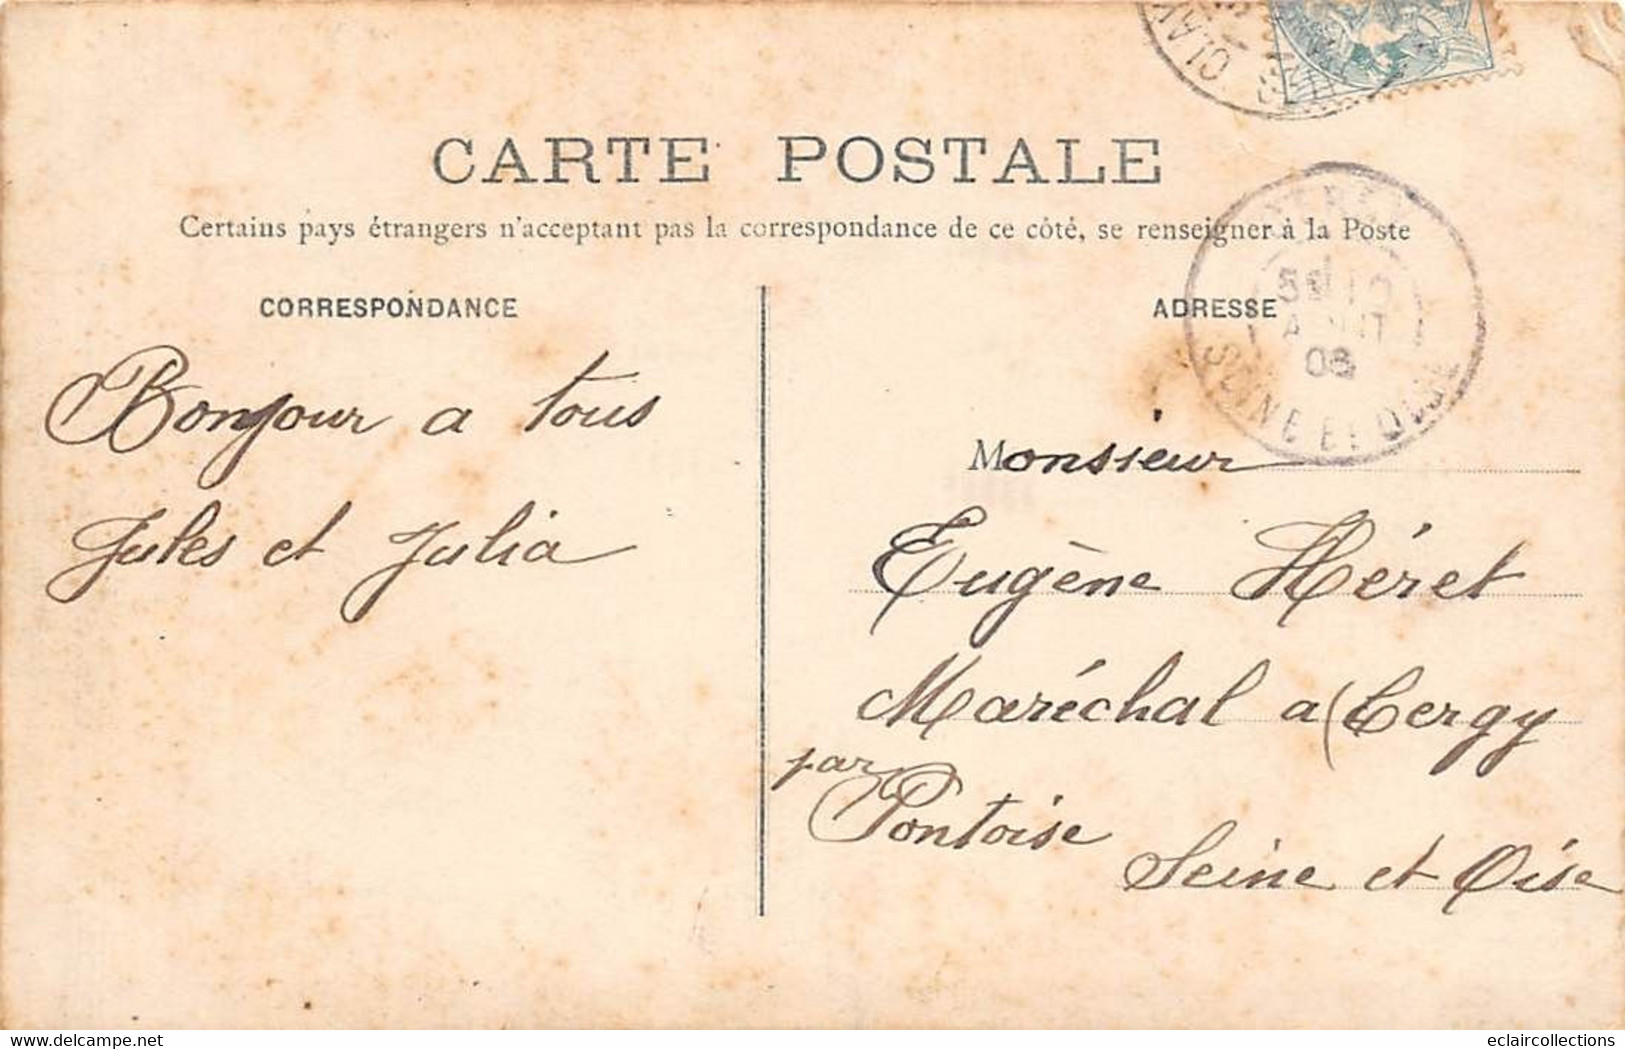 CLAY
CARTE POSTALE
Certains pays étrangers n'acceptant pas la correspondance de ce côté, se renseigner à la Poste
CORRESPONDANCE
ADRESSE
10
08
SEINE ET OISE
Bonjour a tous
Jules et Julia
Monsieur
Eugène Héret
Maréchal a Cergy
par Pontoise
Seine et Oise
www.delcampe.net
eclaircollections